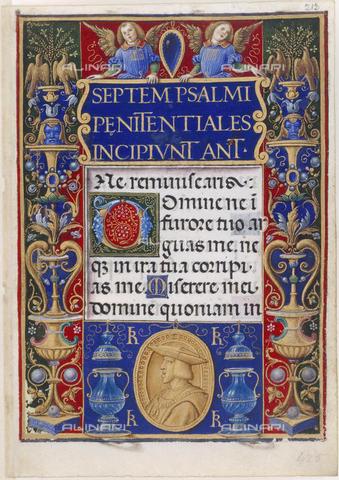 213
SEPTEM PSALMI
PENITENTIALES
INCIPIVNT ANT.
Ne reminiscaris.
Domine ne ī
furore tuo ar
guas me, ne
qꝫ in ira tua corripi
as me. Miserere mei
domine quoniam in
ALINARI
ALINARI
ALINARI
ALINARI
ALINARI
ALINARI